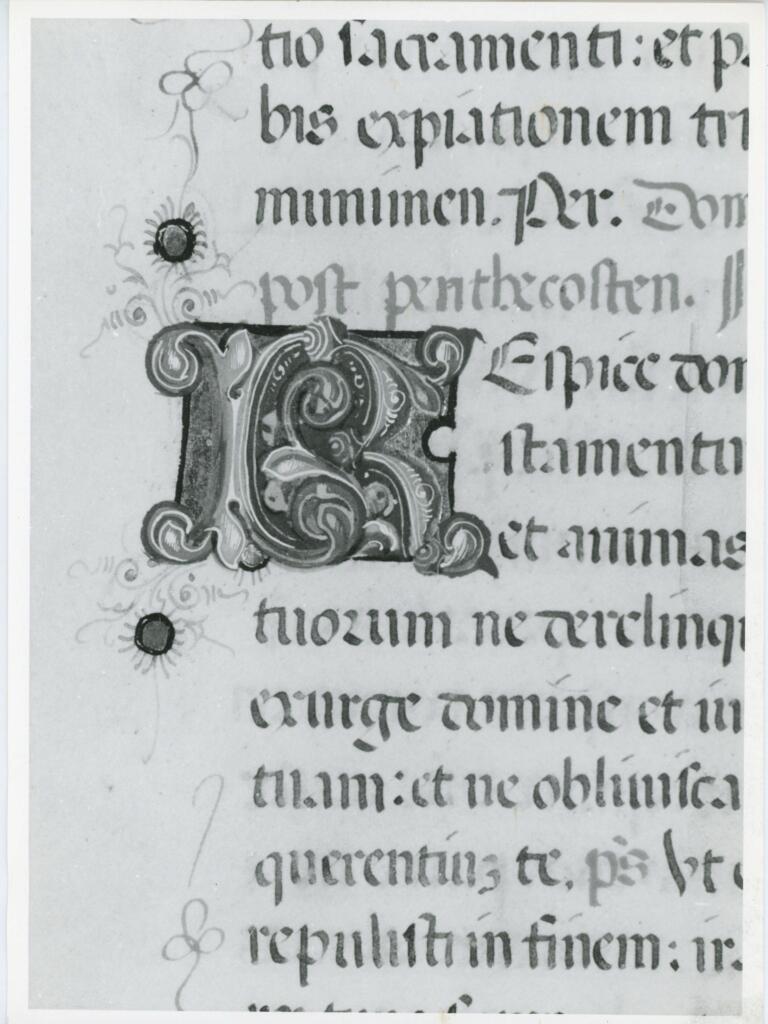 tio sacramenti: et p
bis expiationem tri
munimen. Per. Dom
post penthecosten.
REspice dom
stamentu
et animas
tuorum ne derelinqu
exurge domine et iu
tuam: et ne obliuisca
querentiuꝫ te. ps Vt
repulisti in finem: ir